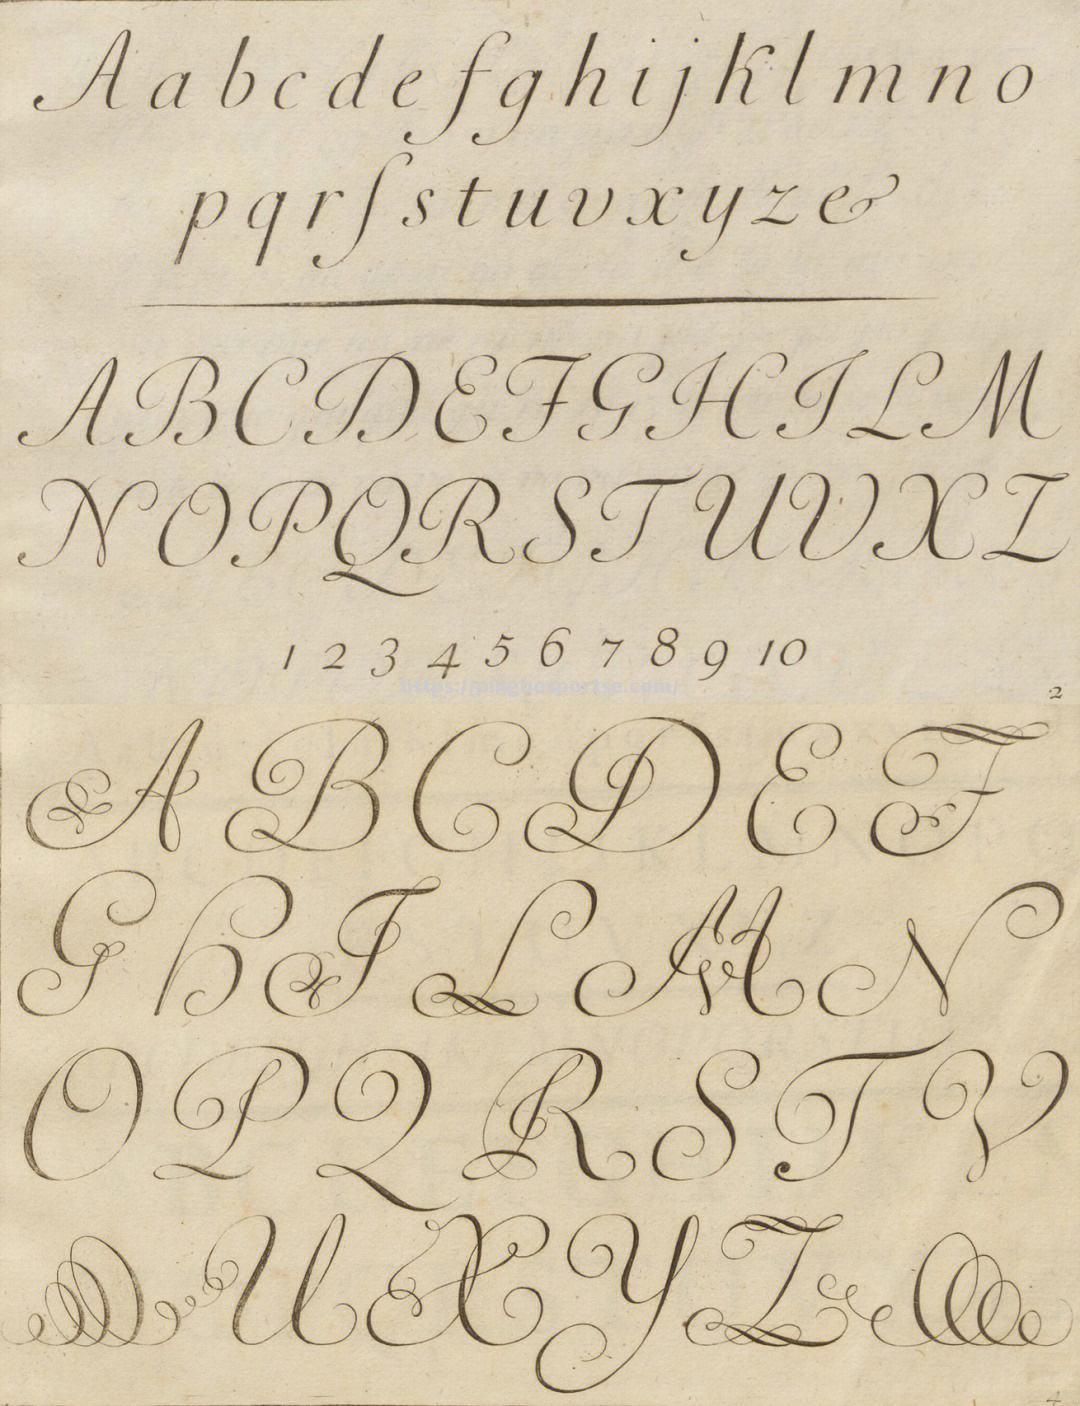 A a b c d e f g h i j k l m n o
p q r ſ s t u v x y z &
A B C D E F G H I L M
N O P Q R S T U V X Z
1 2 3 4 5 6 7 8 9 10
2
A B C D E F
G H I L M N
O P Q R S T V
U X Y Z
4